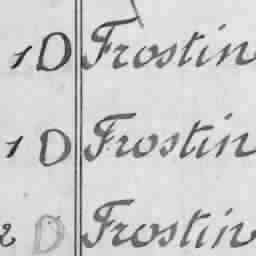 1 D Frostin
1 D Frostin
2 D Frostin